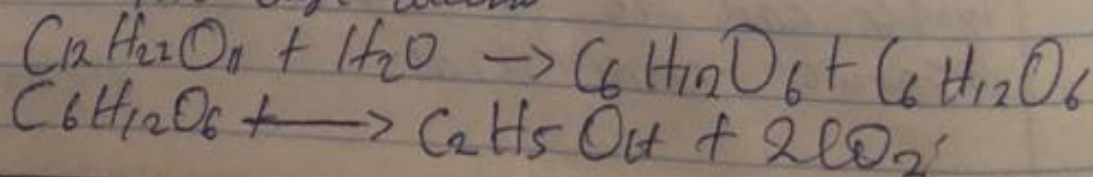 C12H22O11 + H2O → C6H12O6 + C6H12O6
C6H12O6 + → C2H5OH + 2CO2